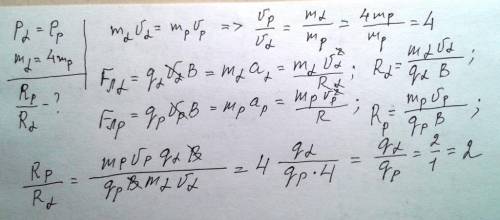 P_α = P_p
m_α = 4m_p
R_p/R_α - ?
m_α v_α = m_p v_p => v_p/v_α = m_α/m_p = 4m_p/m_p = 4
F_лα = q_α v_α B = m_α a_α = m_α v_α²/R_α ; R_α = m_α v_α/q_α B ;
F_лp = q_p v_p B = m_p a_p = m_p v_p²/R ; R_p = m_p v_p/q_p B ;
R_p/R_α = m_p v_p q_α B/q_p B m_α v_α = 4 q_α/q_p·4 = q_α/q_p = 2/1 = 2